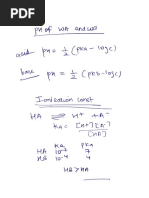 pH of WA and WB
acid pH = 1/2 (pKa - logc)
base pH = 1/2 (pKb - logc)
Ionization const
HA ⇌ H+ + A-
Ka = [H+][A-]
[HA]
Ka pKa
HA 10-7 7
HB 10-4 4
HB > HA